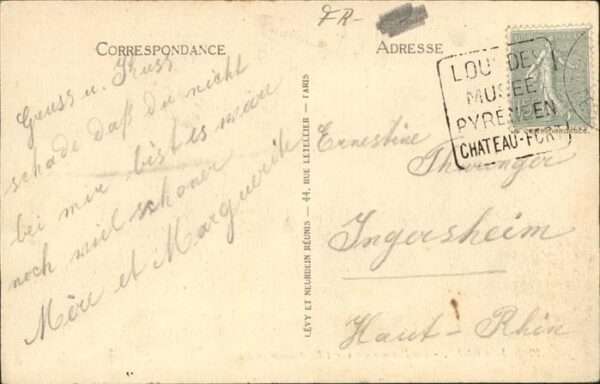 FR-
CORRESPONDANCE
ADRESSE
Gruss u. Kuss
schade daß du nicht
bei mir bist es wäre
noch viel schöner
Mère et Marguerite
LÉVY ET NEURDEIN RÉUNIS — 44, RUE LETELLIER — PARIS
LOURDES
MUSÉE
PYRÉNÉEN
CHATEAU-FORT
Ernestine
Thuringer
Ingersheim
Haut-Rhin